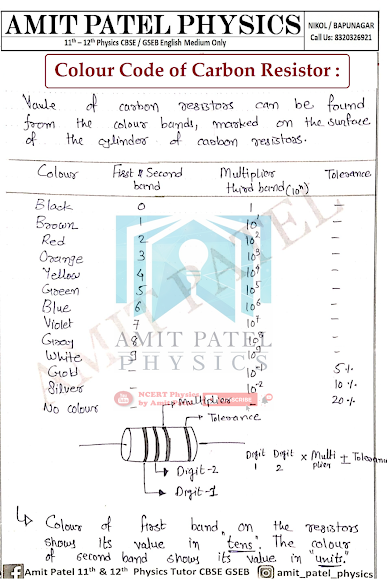 AMIT PATEL PHYSICS
NIKOL / BAPUNAGAR
11th – 12th Physics CBSE / GSEB English Medium Only
Call Us: 8320326921
Colour Code of Carbon Resistor :
Vaule of carbon resistors can be found
from the colour bands, marked on the surface
of the cylinder of carbon resistors.
Colour First & Second band Multiplier third band (10ⁿ) Tolerance
Black 0 1 –
Brown 1 10¹ –
Red 2 10² –
Orange 3 10³ –
Yellow 4 10⁴ –
Green 5 10⁵ –
Blue 6 10⁶ –
Violet 7 10⁷ –
Gray 8 10⁸ –
White 9 10⁹ –
Gold – 10⁻¹ 5%
Silver – 10⁻² 10%
No colour – 20%
AMIT PATEL
PHYSICS
AMIT PATEL
NCERT Physics
Multiplier
Tolerance
Digit-2
Digit-1
Digit 1 Digit 2 × Multiplier ± Tolerance
↳ Colour of first band, on the resistors
shows its value in "tens". The colour
of second band shows its value in "units."
Amit Patel 11th & 12th Physics Tutor CBSE GSEB
amit_patel_physics